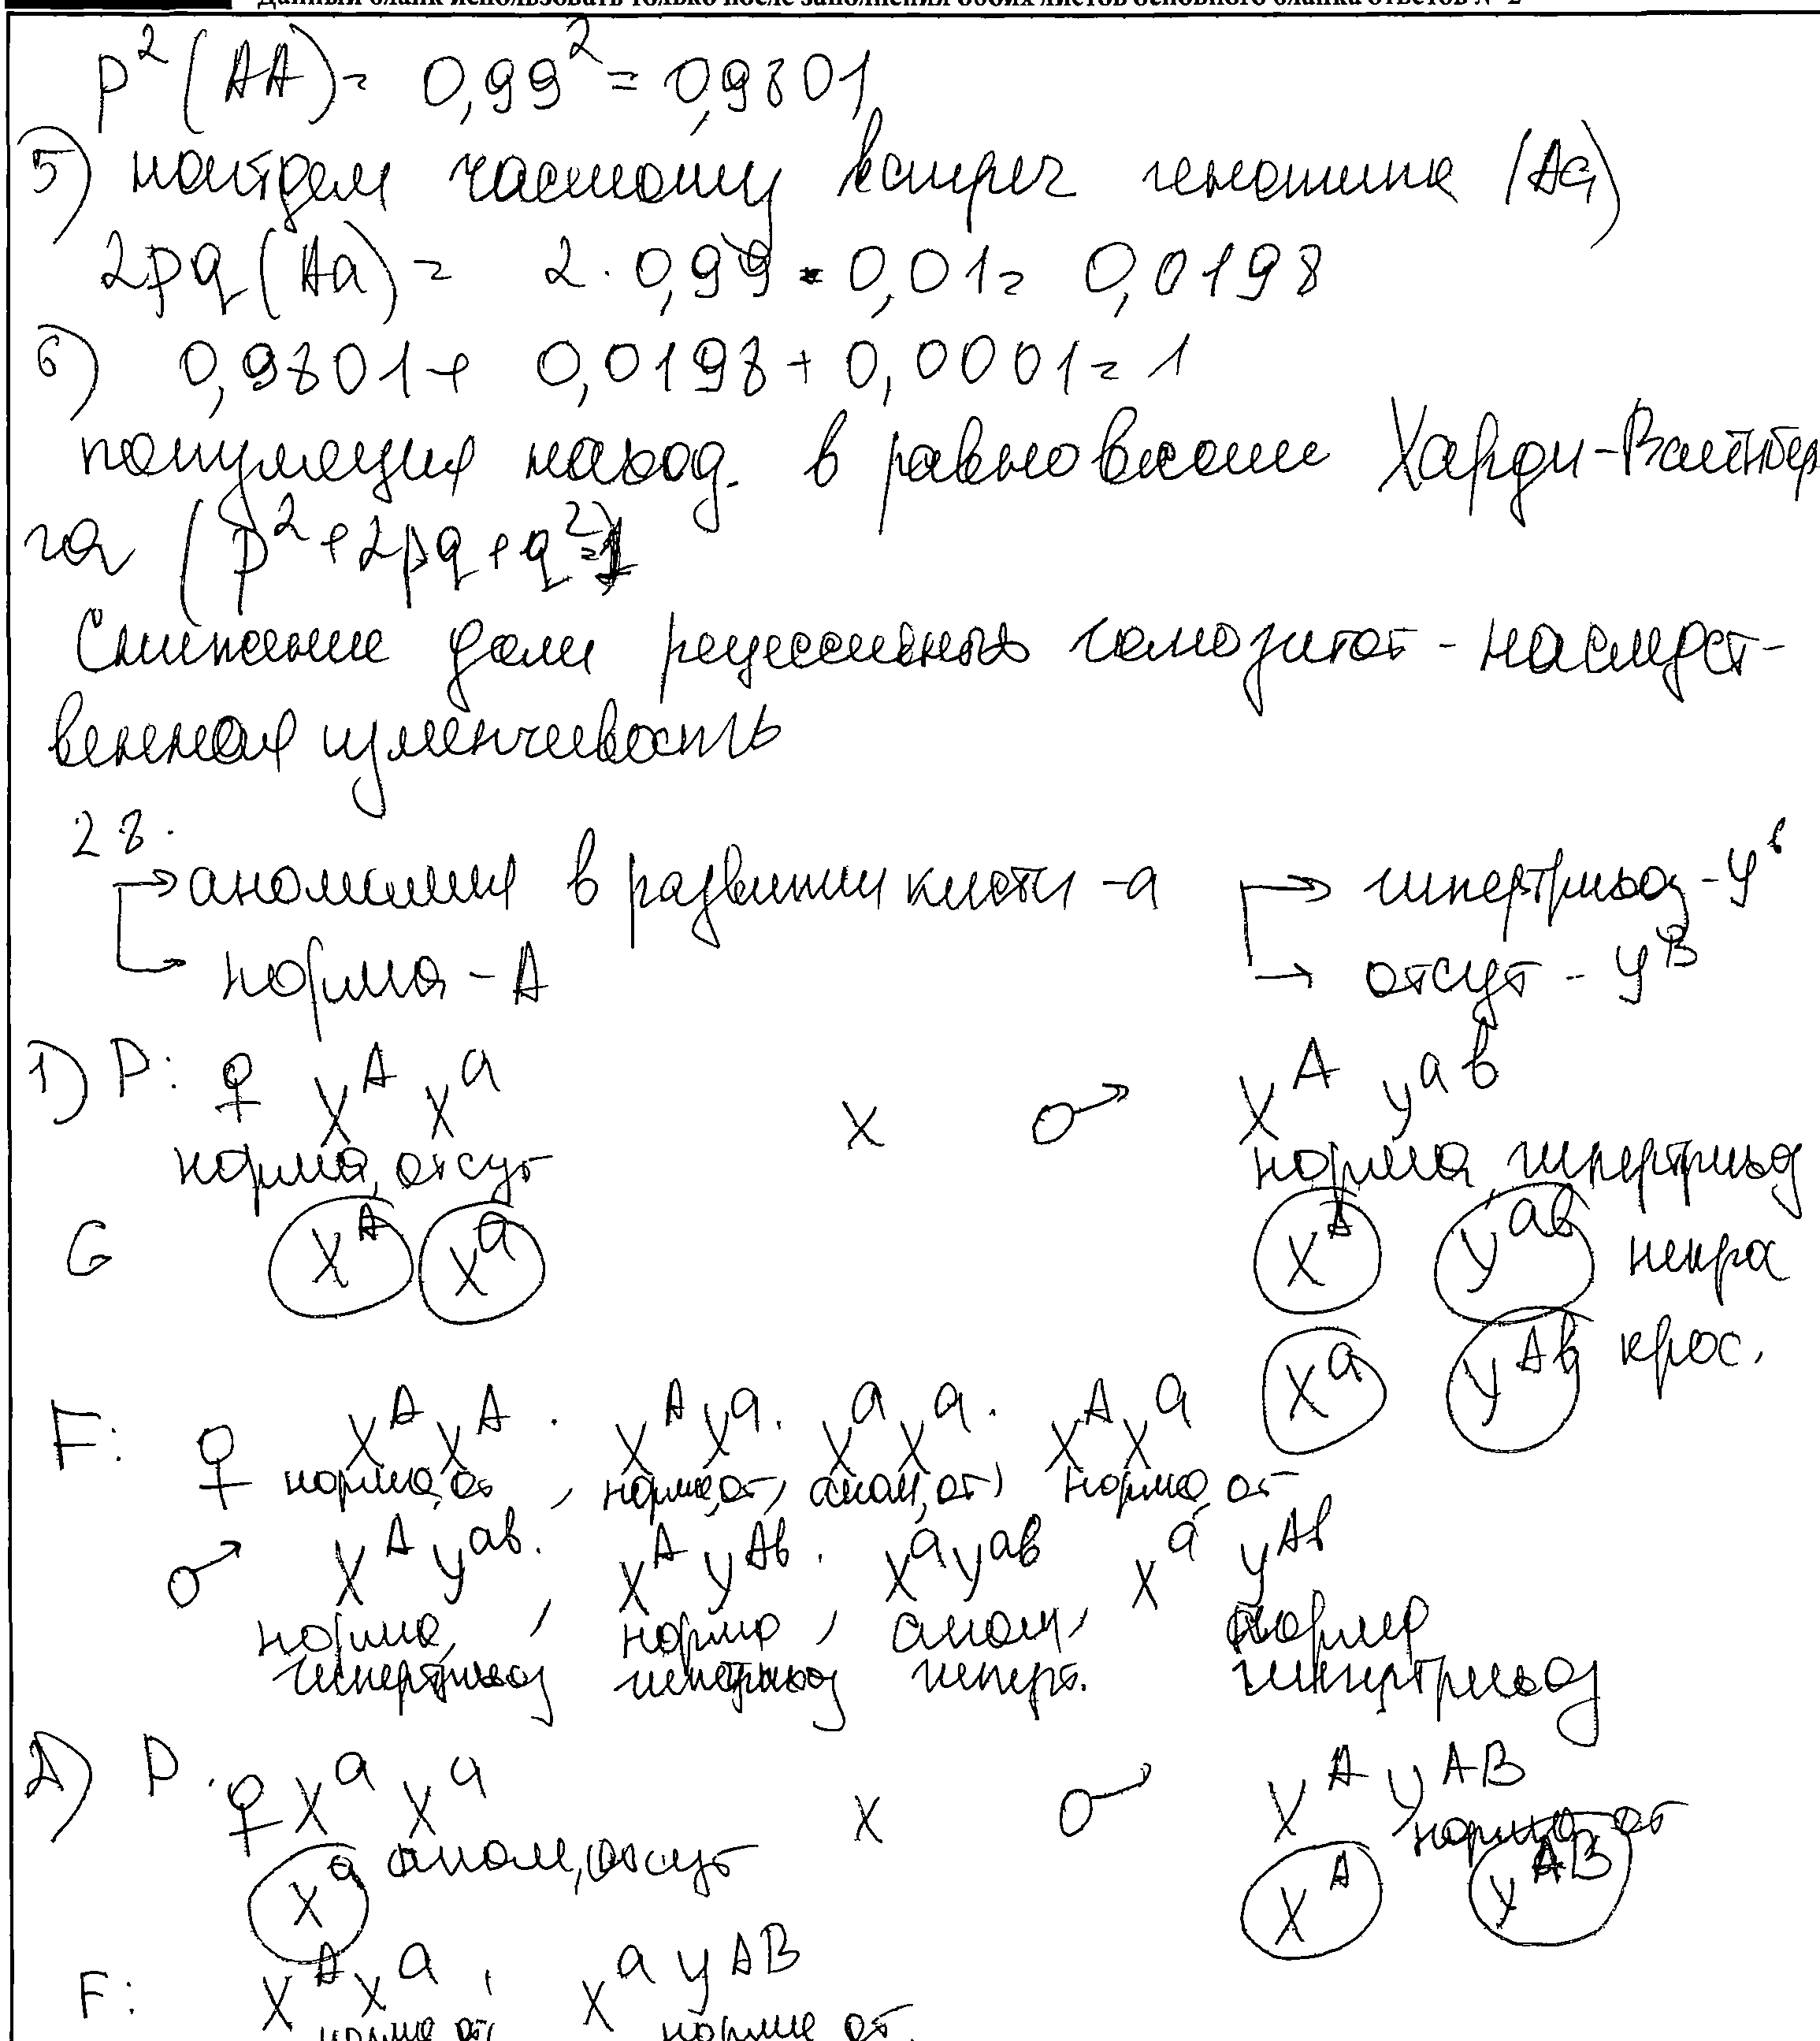 Данный бланк использовать только после заполнения обоих листов основного бланка ответов № 2
p²(AA) = 0,99² = 0,9801
5) найдем частоту встреч генотипа (Aa)
2pq(Aa) = 2 · 0,99 · 0,01 = 0,0198
6) 0,9801 + 0,0198 + 0,0001 = 1
популяция наход. в равновесии Харди-Вайнбер
га (p² + 2pq + q² = 1
Снижение доли рецессивных гомозигот - наследст-
венная изменчивость
28.
→ аномалия в развитии кисти - a → гипертрихоз - Yᵇ
→ норма - A → отсут - Yᴮ
1) P: ♀ Xᴬ Xᵃ x ♂ Xᴬ Yᵃᵇ
норма, отсут норма, гипертрихоз
G Xᴬ Xᵃ Xᴬ Yᵃᵇ некра
Xᵃ Yᴬᵇ крос.
F: ♀ XᴬXᴬ. XᴬXᵃ. XᵃXᵃ. XᴬXᵃ
норма, от, норма, от, аном, от, норма, от
♂ XᴬYᵃᵇ. XᴬYᴬᵇ. XᵃYᵃᵇ Xᵃ Yᴬᵇ
норма, норма, аном, норма
гипертрихоз гипертрихоз гиперт. гипертрихоз
2) P. ♀ Xᵃ Xᵃ x ♂ Xᴬ Yᴬᴮ
аном, отсут норма от
Xᵃ Xᴬ Yᴬᴮ
F: XᴬXᵃ, XᵃYᴬᴮ
норма от, норма от.